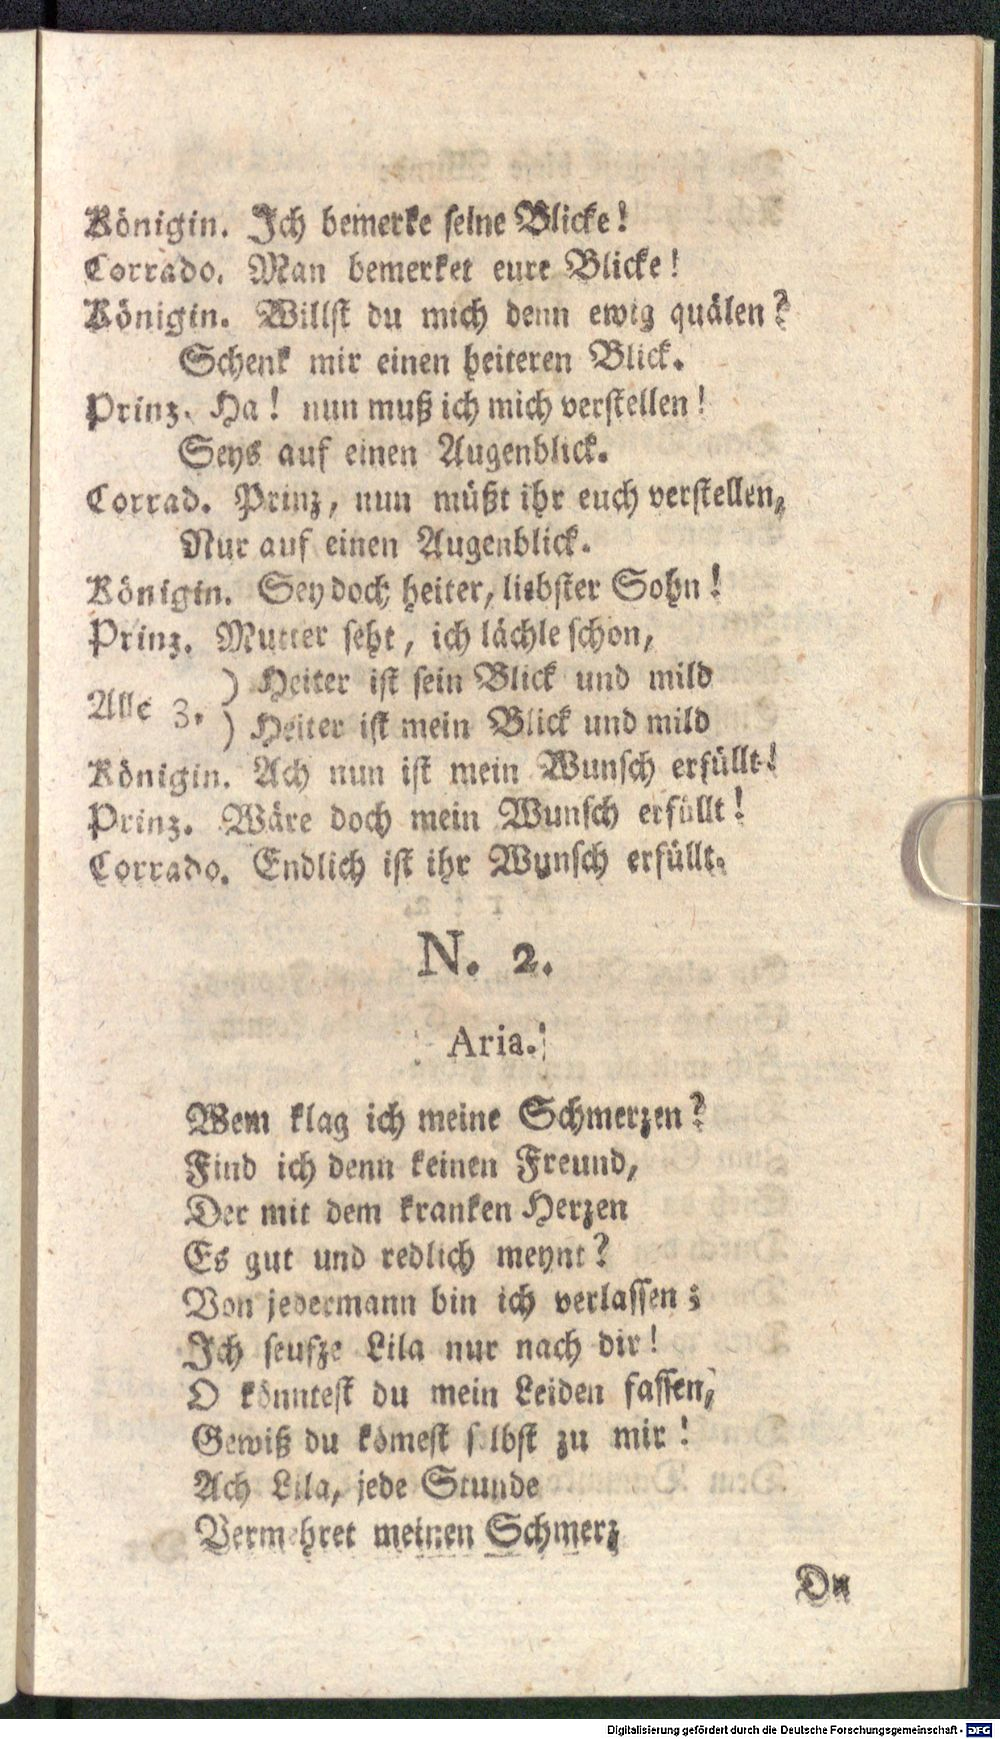 Königin. Ich bemerke seine Blicke!
Corrado. Man bemerket eure Blicke!
Königin. Willst du mich denn ewig quälen?
Schenk mir einen heiteren Blick.
Prinz. Ha! nun muß ich mich verstellen!
Seys auf einen Augenblick.
Corrad. Prinz, nun müßt ihr euch verstellen,
Nur auf einen Augenblick.
Königin. Sey doch heiter, liebster Sohn!
Prinz. Mutter seht, ich lächle schon,
Alle 3. ) Heiter ist sein Blick und mild
) Heiter ist mein Blick und mild
Königin. Ach nun ist mein Wunsch erfüllt!
Prinz. Wäre doch mein Wunsch erfüllt!
Corrado. Endlich ist ihr Wunsch erfüllt.
N. 2.
Aria.
Wem klag ich meine Schmerzen?
Find ich denn keinen Freund,
Der mit dem kranken Herzen
Es gut und redlich meynt?
Von jedermann bin ich verlassen;
Ich seufze Lila nur nach dir!
O könntest du mein Leiden fassen,
Gewiß du kömest selbst zu mir!
Ach Lila, jede Stunde
Vermehret meinen Schmerz
Du
Digitalisierung gefördert durch die Deutsche Forschungsgemeinschaft - DFG